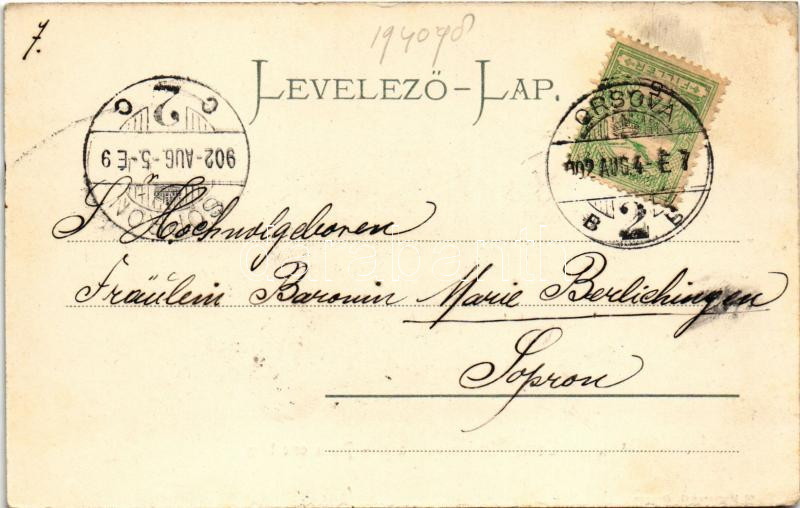 7.
194098
LEVELEZŐ-LAP.
FILLÉR
ORSOVA
902 AUG. 4 - É 7
B 2 B
SOPRON
902-AUG.-5.-É 9
C 2 C
S. Hochwolgeboren
Fräulein Baronin Marie Berlichingen
Sopron